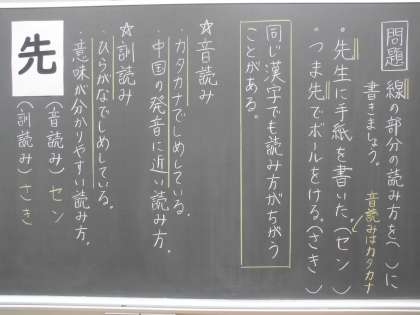 問題
線の部分の読み方を( )に
書きましょう。
・先生に手紙を書いた。(セン)
音読みはカタカナ
・つま先でボールをける。(さき)
同じ漢字でも読み方がちがう
ことがある。
☆音読み
・カタカナでしめしている。
・中国の発音に近い読み方。
☆訓読み
・ひらがなでしめしている。
・意味が分かりやすい読み方。
先
(音読み)セン
(訓読み)さき